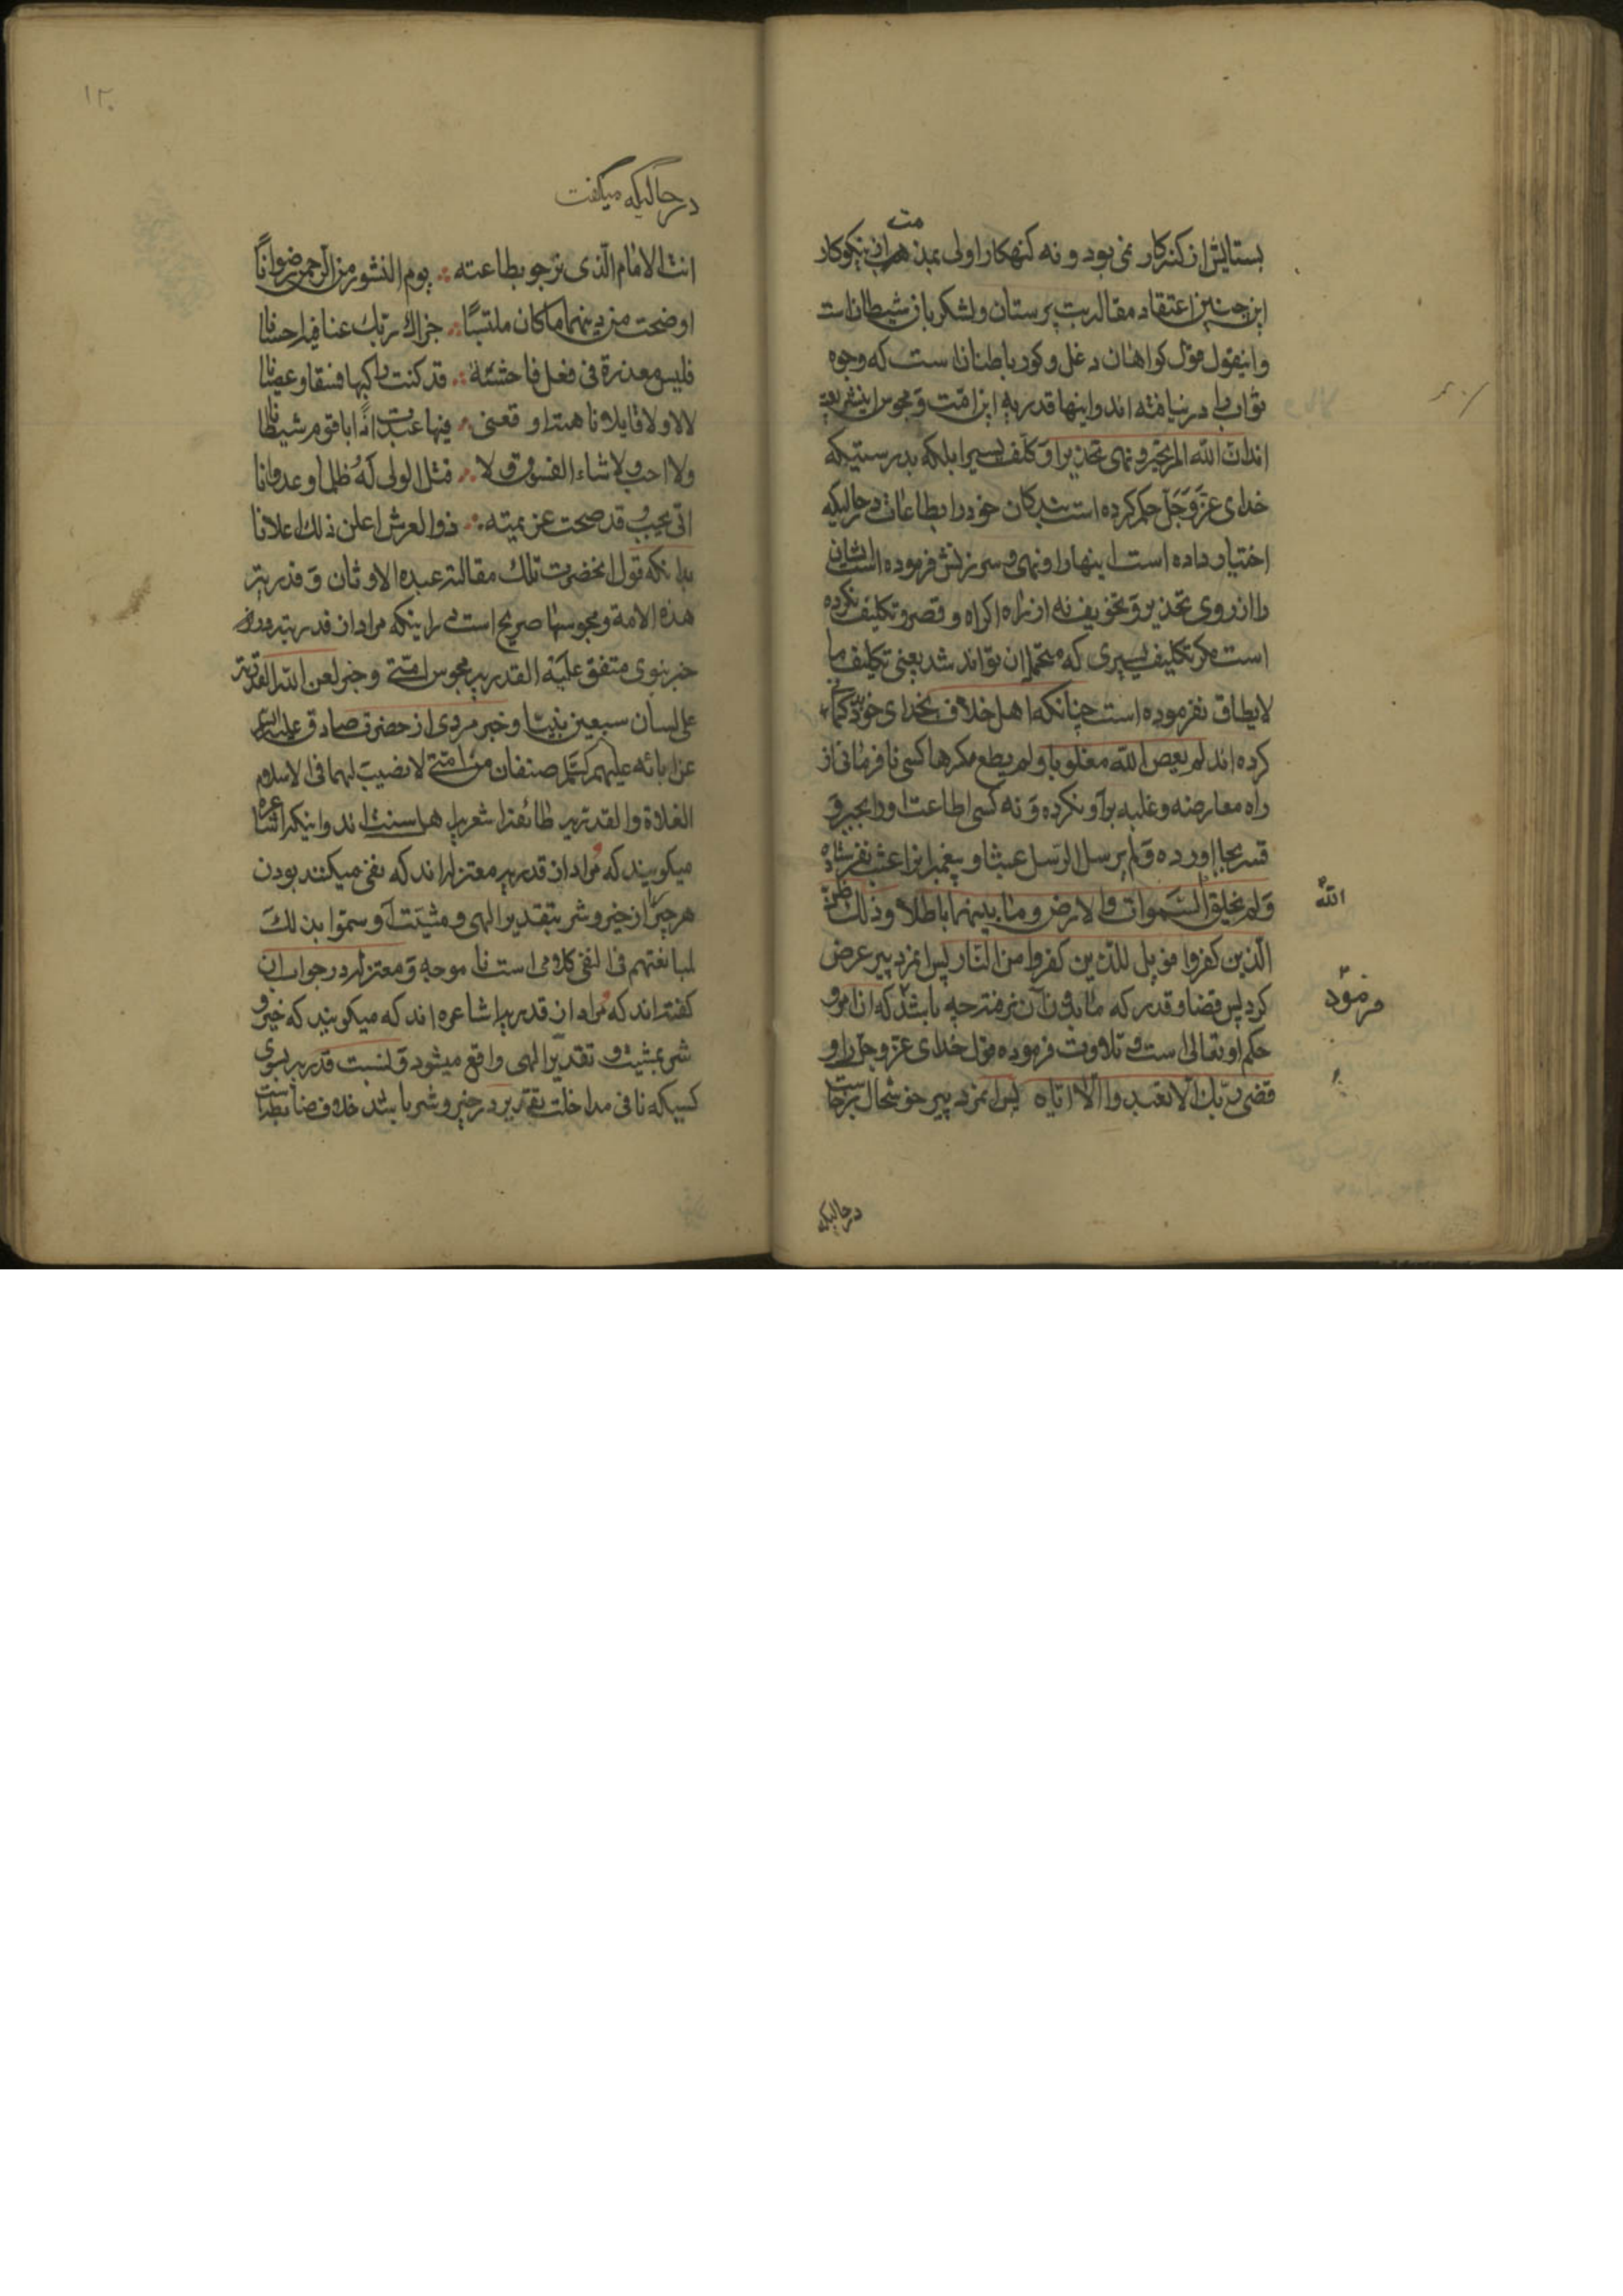 بستایش از گنه‌کار نمی‌بود و نه گنهکار اولی بمذمت از نیکوکار
این چنین اعتقاد مقاله بت پرستان و لشکریان شیطان است
و اینقول قول کواهان دغل و کور باطنان است که وجوه
ثواب را در نیافته اند و اینها قدریه این امت و مجوس اینشریعه
اند ان الله امر تخییرا و نهی تحذیرا و کلف یسیرا بلکه بدرستیکه
خدای عز و جل حکم کرده است بندکان خود را بطاعات در حالیکه
اختیار داده است اینها را و نهی و سرزنش فرموده است ایشان
را از روی تحذیر و تخویف نه از راه اکراه و قصر و تکلیف نکرده
است مکر تکلیف یسیری که متحمل ان تواند شد یعنی تکلیف ما
لا یطاق نفرموده است چنانکه اهل خلاف بخدای خود کمان
کرده اند لم یعص الله مغلوبا و لم یطع مکرها کسی نافرمانی از
راه معارضه و غلبه بر او نکرده و نه کسی اطاعت او را بجبر و
قسر بجا اورده و لم یرسل الرسل عبثا و پیغمبرانرا عبث نفرستاده
الله
و لم یخلق السموات و الارض و ما بینهما باطلا و ذلک ظن
الذین کفروا فویل للذین کفروا من النار پس انمرد پیر عرض
فرمود
کرد پس قضا و قدر که ما بدون آن نرفتیم چه باشد که ان امر و
حکم او تعالی است و تلاوت فرموده قول خدای عز و جل را و
قضی ربک الا تعبدوا الا ایاه پس انمرد پیر خوشحال برخاست
در حالیکه
۱۲۰
در حالیکه میگفت
انت الامام الذی نرجو بطاعته ∴ یوم النشور من الرحمن رضوانًا
اوضحت من دیننا ما کان ملتبسًا ∴ جزاک ربک عنا فیه احسانا
فلیس معذرة فی فعل فاحشة ∴ قد کنت راکبها فسقا و عصیانا
لا لا و لا قایلا ناهیه اوقعنی ∴ فیها عبدت اذًا یا قوم شیطانا
و لا احب و لا شاء الفسوق و لا ∴ قتل الولی لَهُ ظلما و عدوانا
انی یحب و قد صحت عزیمته ∴ ذو العرش اعلن ذلک اعلانا
بدانکه قول انحضرت تلک مقالة عبدة الاوثان و قدریة
هذه الامة و مجوسها صریح است براینکه مراد از قدریه در
خبر نبوی متفق علیه القدریه مجوس امتی و خبر لعن الله القدریة
علی لسان سبعین نبیًا و خبر مروی از حضرت صادق علیه السلام
عن ابائه علیهم السلام صنفان من امتی لا نصیب لهما فی الاسلام
الغلاة و القدریه طائفه اشعریه اهل سنت اند و اینکه اشاعره
میکویند که مراد از قدریه معتزله اند که نفی میکنند بودن
هر چیز از خیر و شر بتقدیر الهی و مشیت او و سموا بذلک
لمبالغتهم فی النفی کلامی است نا موجه و معتزله در جواب ان
کفته اند که مراد از قدریه اشاعره اند که میکویند که خیر و
شر بمشیت و تقدیر الهی واقع میشود و نسبت قدریه بسوی
کسیکه نافی مداخلت تقدیر در خیر و شر باشد خلاف